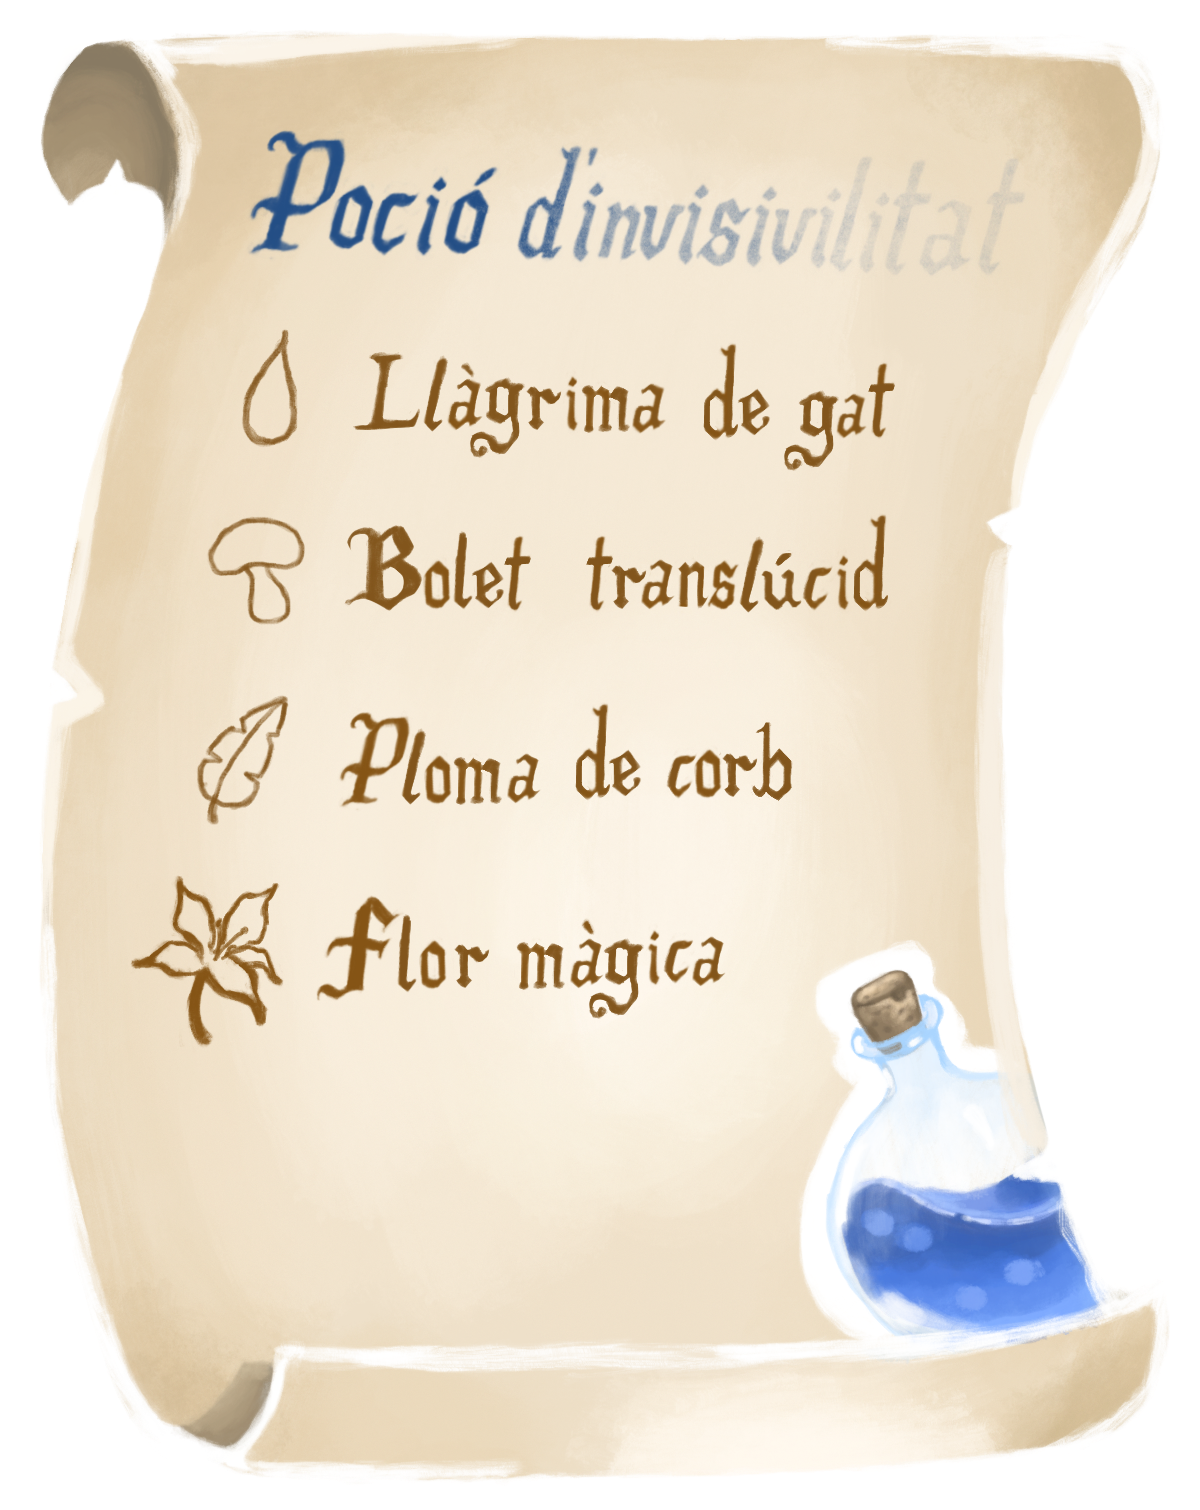 Poció d'invisivilitat
Llàgrima de gat
Bolet translúcid
Ploma de corb
Flor màgica